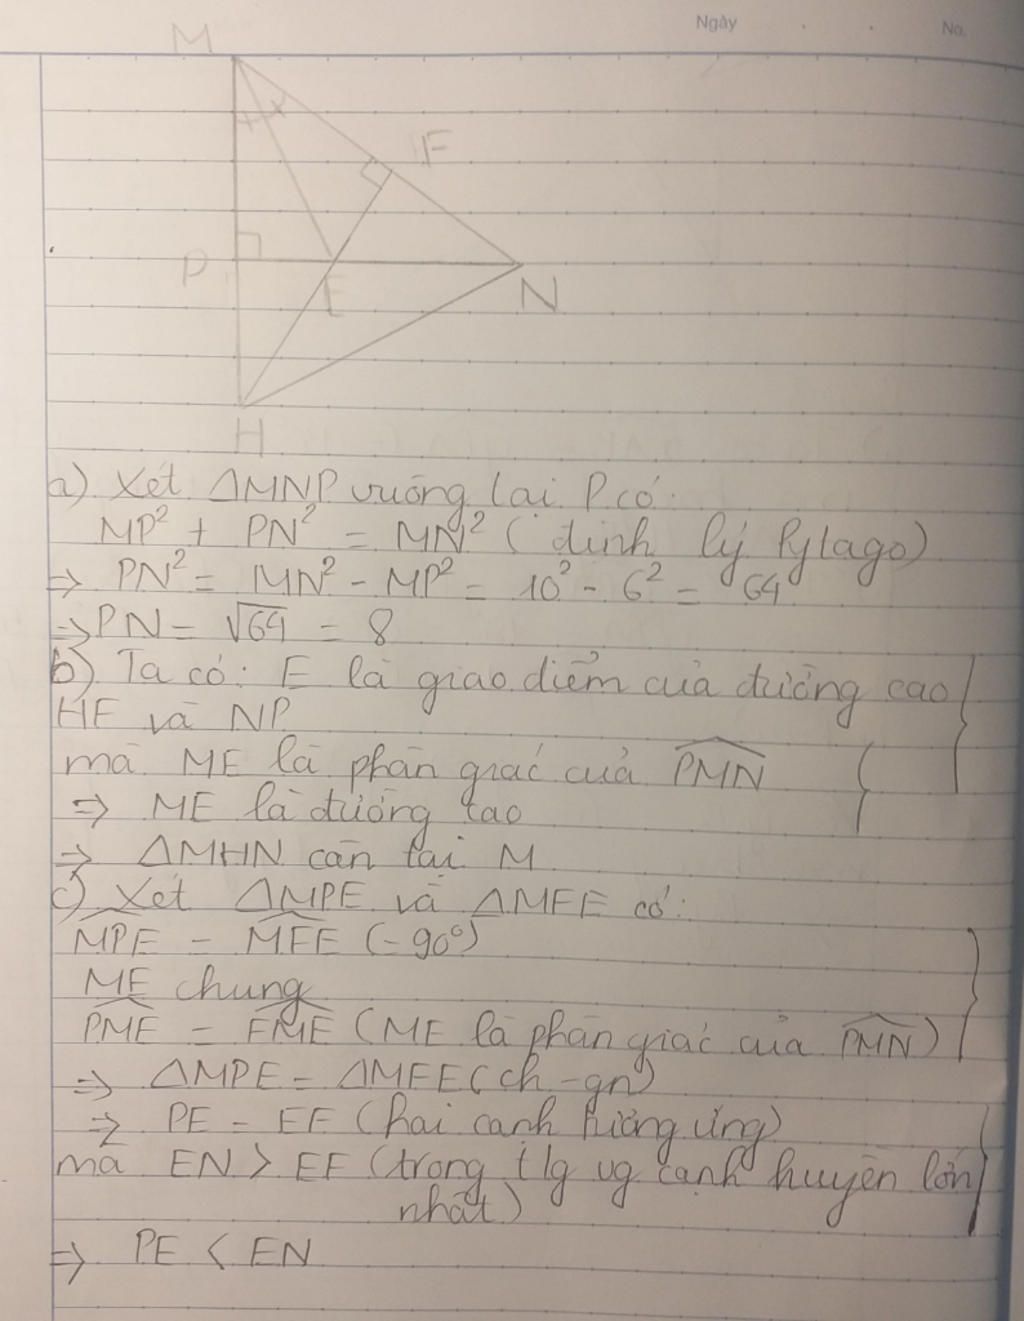 Ngày
No.
M
F
P
E
N
H
a) Xét ΔMNP vuông tại P có:
MP² + PN² = MN² (định lý Pytago)
⇒ PN² = MN² - MP² = 10² - 6² = 64
⇒ PN = √64 = 8
b) Ta có: E là giao điểm của đường cao
HF và NP
mà ME là phân giác của PMN
⇒ ME là đường cao
⇒ ΔMHN cân tại M
c) Xét ΔMPE và ΔMFE có:
MPE = MFE (= 90°)
ME chung
PME = FME (ME là phân giác của PMN)
⇒ ΔMPE = ΔMFE (ch - gn)
⇒ PE = EF (hai cạnh tương ứng)
mà EN > EF (trong t/g vg cạnh huyền lớn
nhất)
⇒ PE < EN